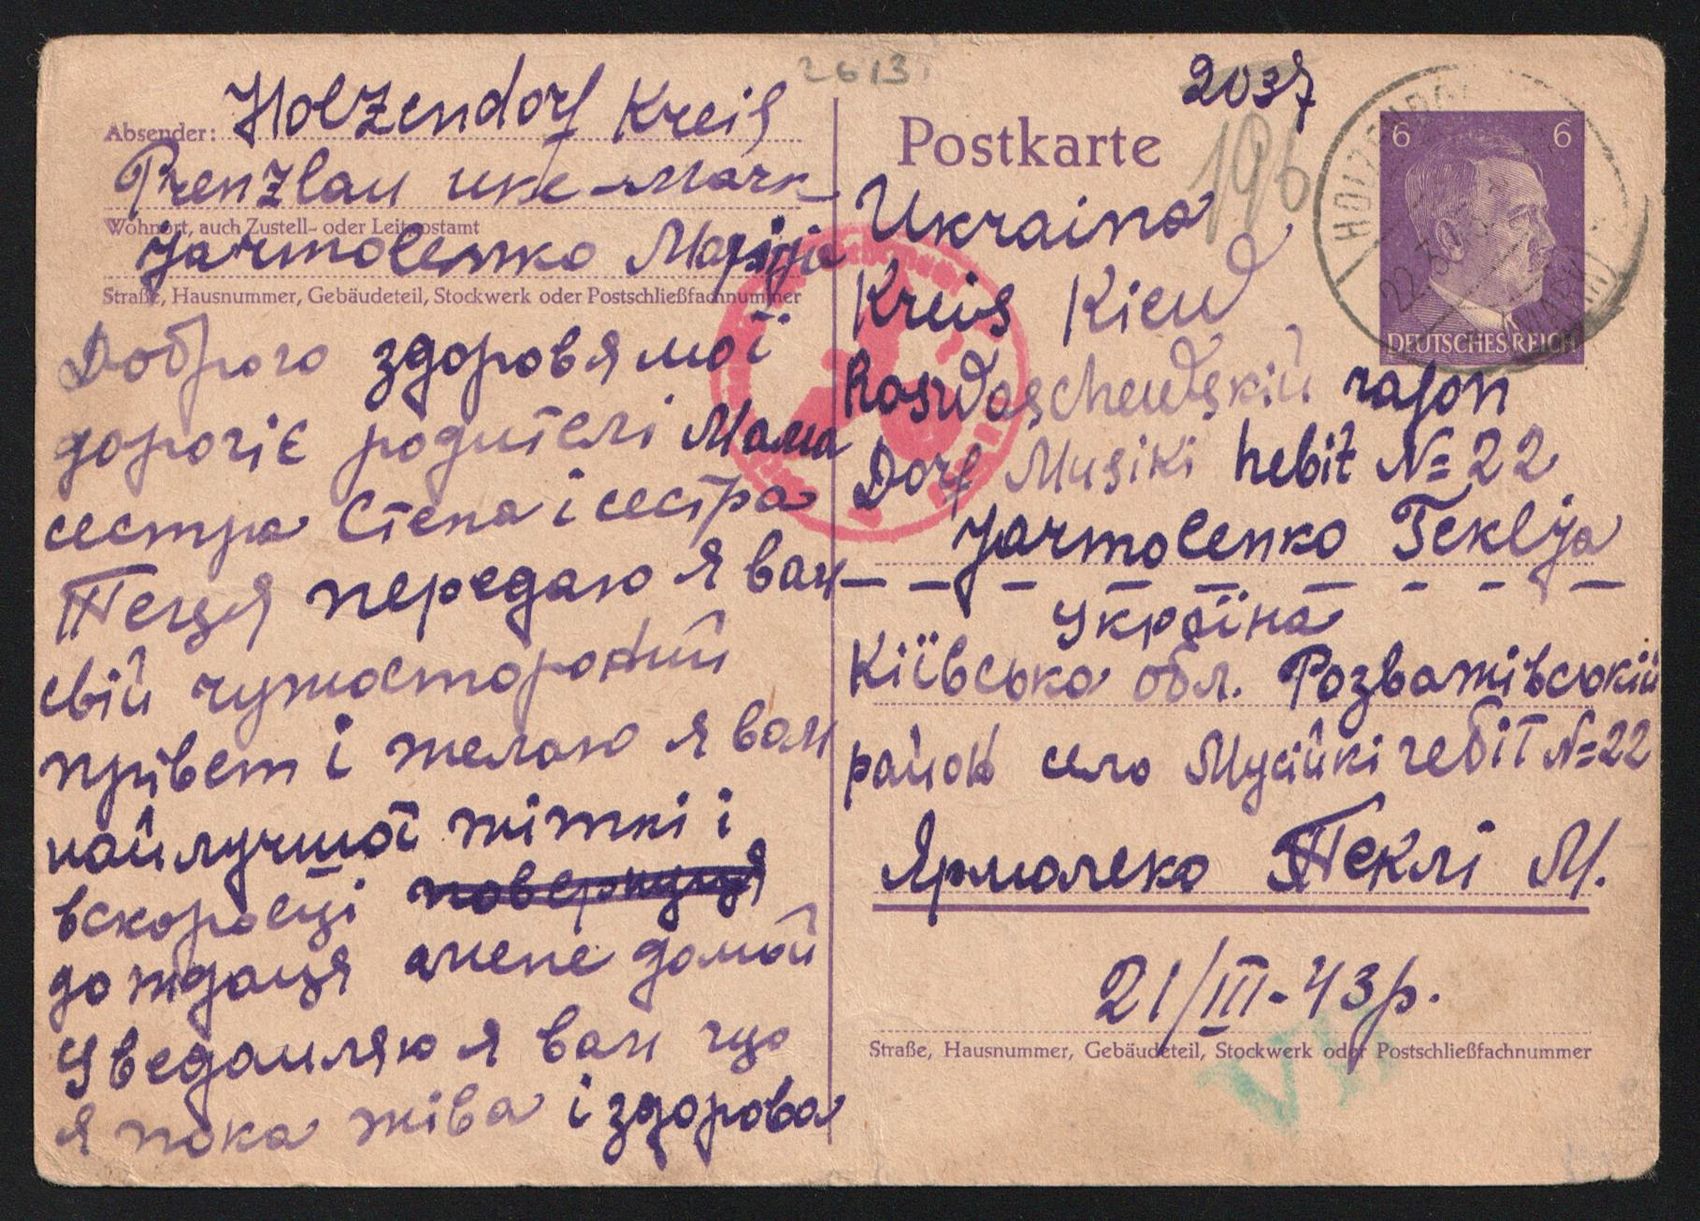 2613
Holzendorf Kreis
Absender:
Prenzlau uke-Mark
Wohnort, auch Zustell- oder Leitpostamt
Jarmolenko Marija
Straße, Hausnummer, Gebäudeteil, Stockwerk oder Postschließfachnummer
Доброго здоровя мої
дорогіє родителі Мама
сестра Степа і сестра
Теця передаю я вам
свій чужостороний
прівет і желаю я вам
найлучшої жіткі і
вскоросці повернуця
дождаця мене домой
Уведамляю я вам що
я пока жіва і здорова
2037
Postkarte
196
6 6
DEUTSCHES REICH
HOLZENDORF
22.3
Ukraina
Kreis Kiew
Roswaschewskiй rajon
Dorf Musiki hebit № 22
Jarmolenko Teklja
Україна
Кіївсько обл. Розважівський
район село Мусійкі чебіт №22
Ярмолеко Теклі М.
21/III-43р.
Straße, Hausnummer, Gebäudeteil, Stockwerk oder Postschließfachnummer
VII